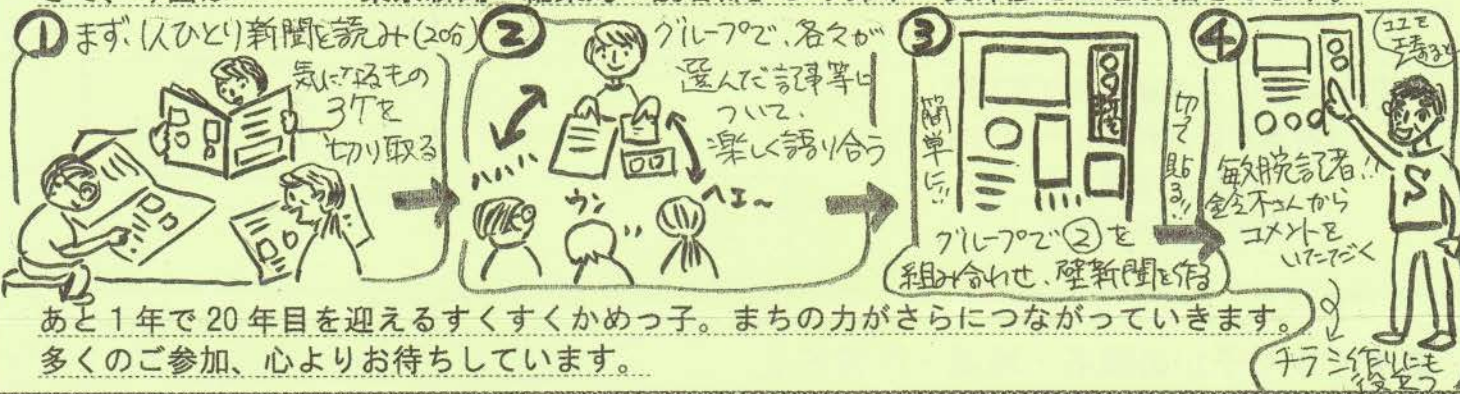 ① まず、1人ひとり新聞を読み(20分)
気になるもの
3ケを
切り取る
②
グループで、各々が
選んだ記事等に
ついて、
楽しく語り合う
ウン
ヘエ~
③
簡単に!!
切って貼る!!
グループで②を
組み合わせ、壁新聞を作る
④
ココを
敏腕記者!!
鈴木さんから
コメントを
いただく
S
チラシ作りにも
役立つ
あと1年で20年目を迎えるすくすくかめっ子。まちの力がさらにつながっていきます。
多くのご参加、心よりお待ちしています。